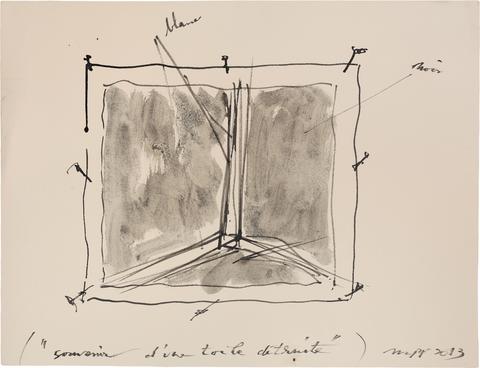 blanc
noir
("souvenir d'une toile détruite")